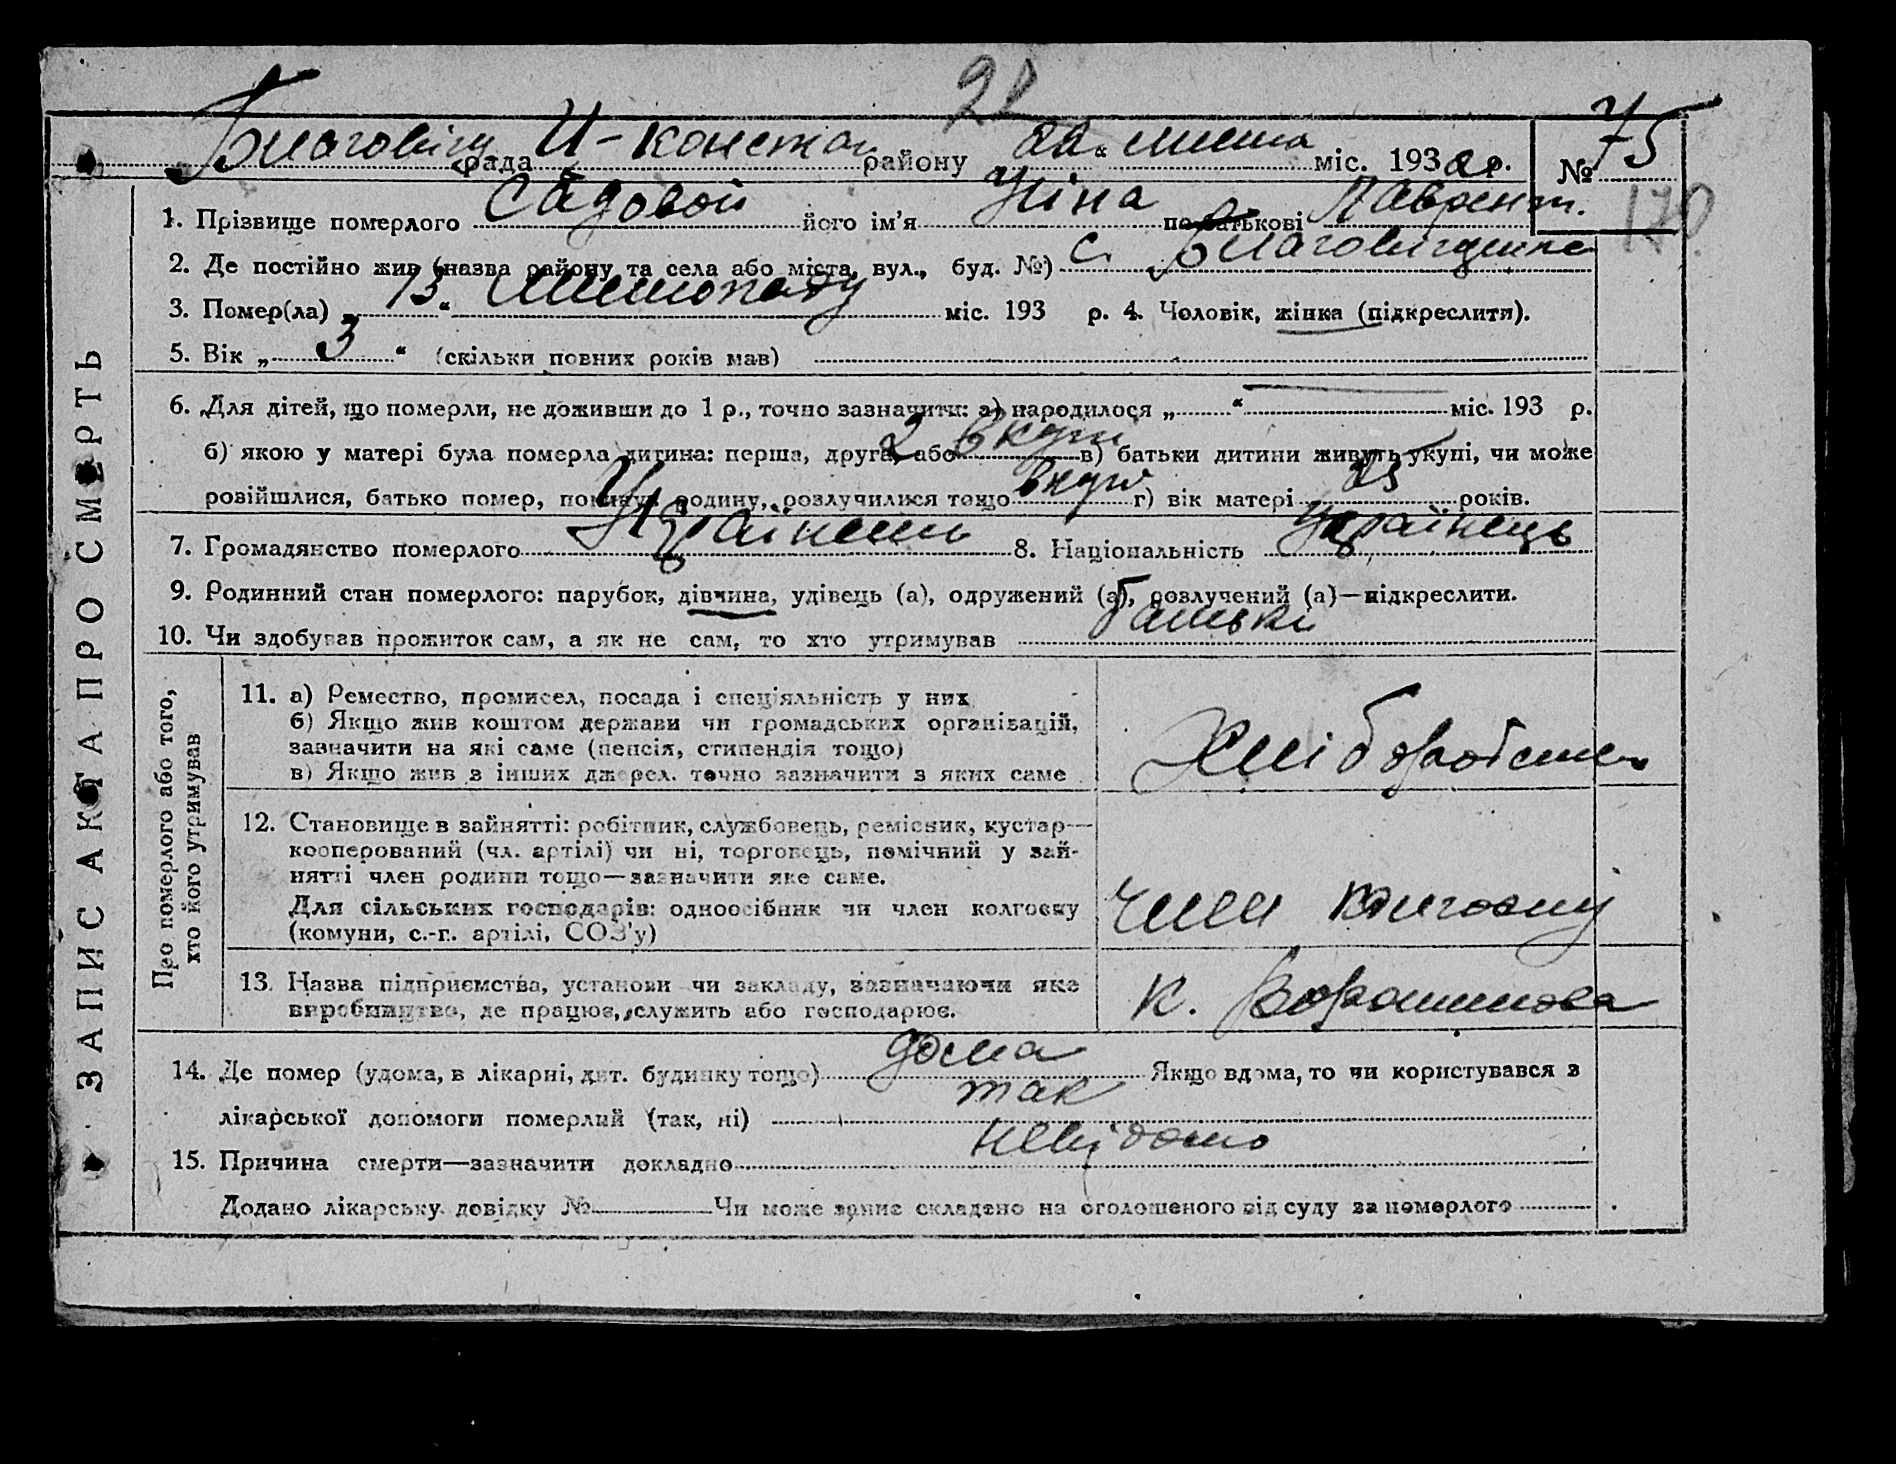 28
Благовіщ рада И-констан району "22" листа міс. 1932 р. № 75
170
1. Прізвище померлого Садовой його ім'я Ніна по батькові Лаврент.
2. Де постійно жив (назва району та села або міста, вул., буд. №) с. Благовіщенка
3. Помер(ла) "13" Листопаду міс. 193 р. 4. Чоловік, жінка (підкреслити).
5. Вік „ 3 “ (скільки повних років мав)
6. Для дітей, що померли, не доживши до 1 р., точно зазначити: а) народилося „ “ міс. 193 р.
б) якою у матері була померла дитина: перша, друга, або 2 вкупі в) батьки дитини живуть укупі, чи може
розійшлися, батько помер, покинув родину, розлучилися тощо вкупі г) вік матері 23 років.
7. Громадянство померлого Українець 8. Національність Українець
9. Родинний стан померлого: парубок, дівчина, удівець (а), одружений (а), розлучений (а)—підкреслити.
10. Чи здобував прожиток сам, а як не сам, то хто утримував батьки
ЗАПИС АКТА ПРО СМЕРТЬ
Про померлого або того,
хто його утримував
11. а) Ремество, промисел, посада і спеціяльність у них
б) Якщо жив коштом держави чи громадських організацій,
зазначити на які саме (пенсія, стипендія тощо)
в) Якщо жив з інших джерел. точно зазначити з яких саме
Хліборобство
12. Становище в зайнятті: робітник, службовець, ремісник, кустар—
кооперований (чл. артілі) чи ні, торговець, помічний у зай-
нятті член родини тощо—зазначити яке саме.
Для сільських господарів: одноосібник чи член колгоспу
(комуни, с.-г. артілі, СОЗ'у)
член колгоспу
13. Назва підприємства, установи чи закладу, зазначаючи яке
виробництво, де працює, служить або господарює.
К. Ворошилова
14. Де помер (удома, в лікарні, дит. будинку тощо) дома Якщо вдома, то чи користувався з
лікарської допомоги померлий (так, ні) так
15. Причина смерти—зазначити докладно невідомо
Додано лікарську довідку № Чи може запис складено на оголошеного від суду за померлого